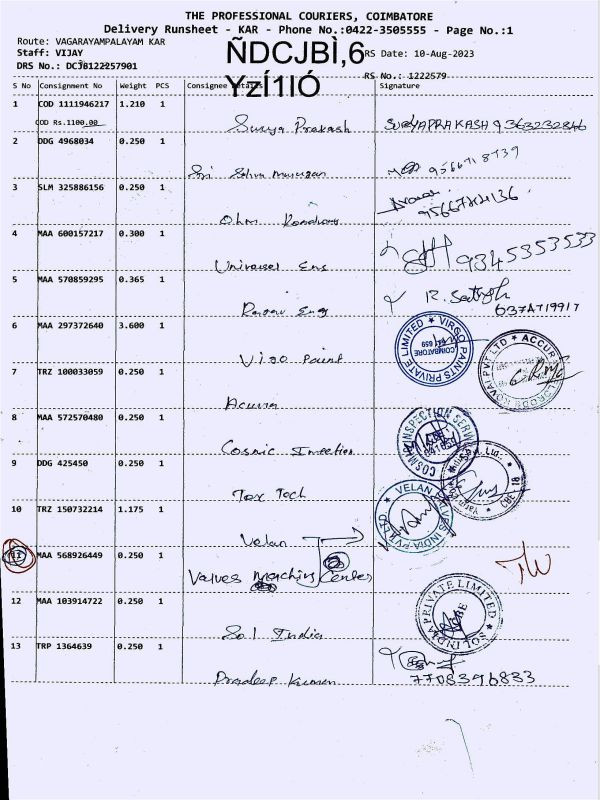 THE PROFESSIONAL COURIERS, COIMBATORE
Delivery Runsheet - KAR - Phone No.:0422-3505555 - Page No.:1
Route: VAGARAYAMPALAYAM KAR
Staff: VIJAY
ÑDCJBÌ,6
RS Date: 10-Aug-2023
DRS No.: DCJ8122257901
YzÍ1IÓ
RS No.: 1222579
S No Consignment No Weight PCS Consignee Signature
1 COD 1111946217 1.210 1
COD Rs.1100.00 Surya Prakash SURYAPRAKASH 9363232846
2 DDG 4968034 0.250 1
Sri 9566718739
3 SLM 325886156 0.250 1
Ohm
4 MAA 600157217 0.300 1
Universel Eng 9345353533
5 MAA 570859295 0.365 1
Eng R. Satysh
6 MAA 297372640 3.600 1
Virgo Paint VIRGO PAINTS PRIVATE LIMITED COIMBATORE 659
7 TRZ 100033059 0.250 1
Accura ACCUR
8 MAA 572570480 0.250 1
Cosmic COSMARK INSPECTION SERV
9 DDG 425450 0.250 1
Tex Tech
10 TRZ 150732214 1.175 1
Velan VELAN VALVES INDIA PVT LTD
11 MAA 568926449 0.250 1
Valves Machins Center
12 MAA 103914722 0.250 1
Sol India SOL INDIA PRIVATE LIMITED
13 TRP 1364639 0.250 1
Pradeep Kumar 7708396833